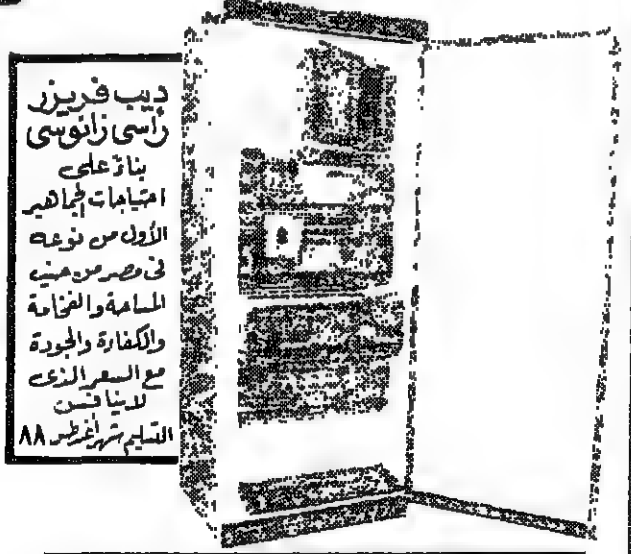 ديب فريزر
رأسى زانوسى
بناءً على
احتياجات الجماهير
الأول من نوعه
فى مصر من حيث
المساحة والفخامة
والكفاءة والجودة
مع السعر الذى
لا ينافس
التسليم شهر أغسطس ٨٨